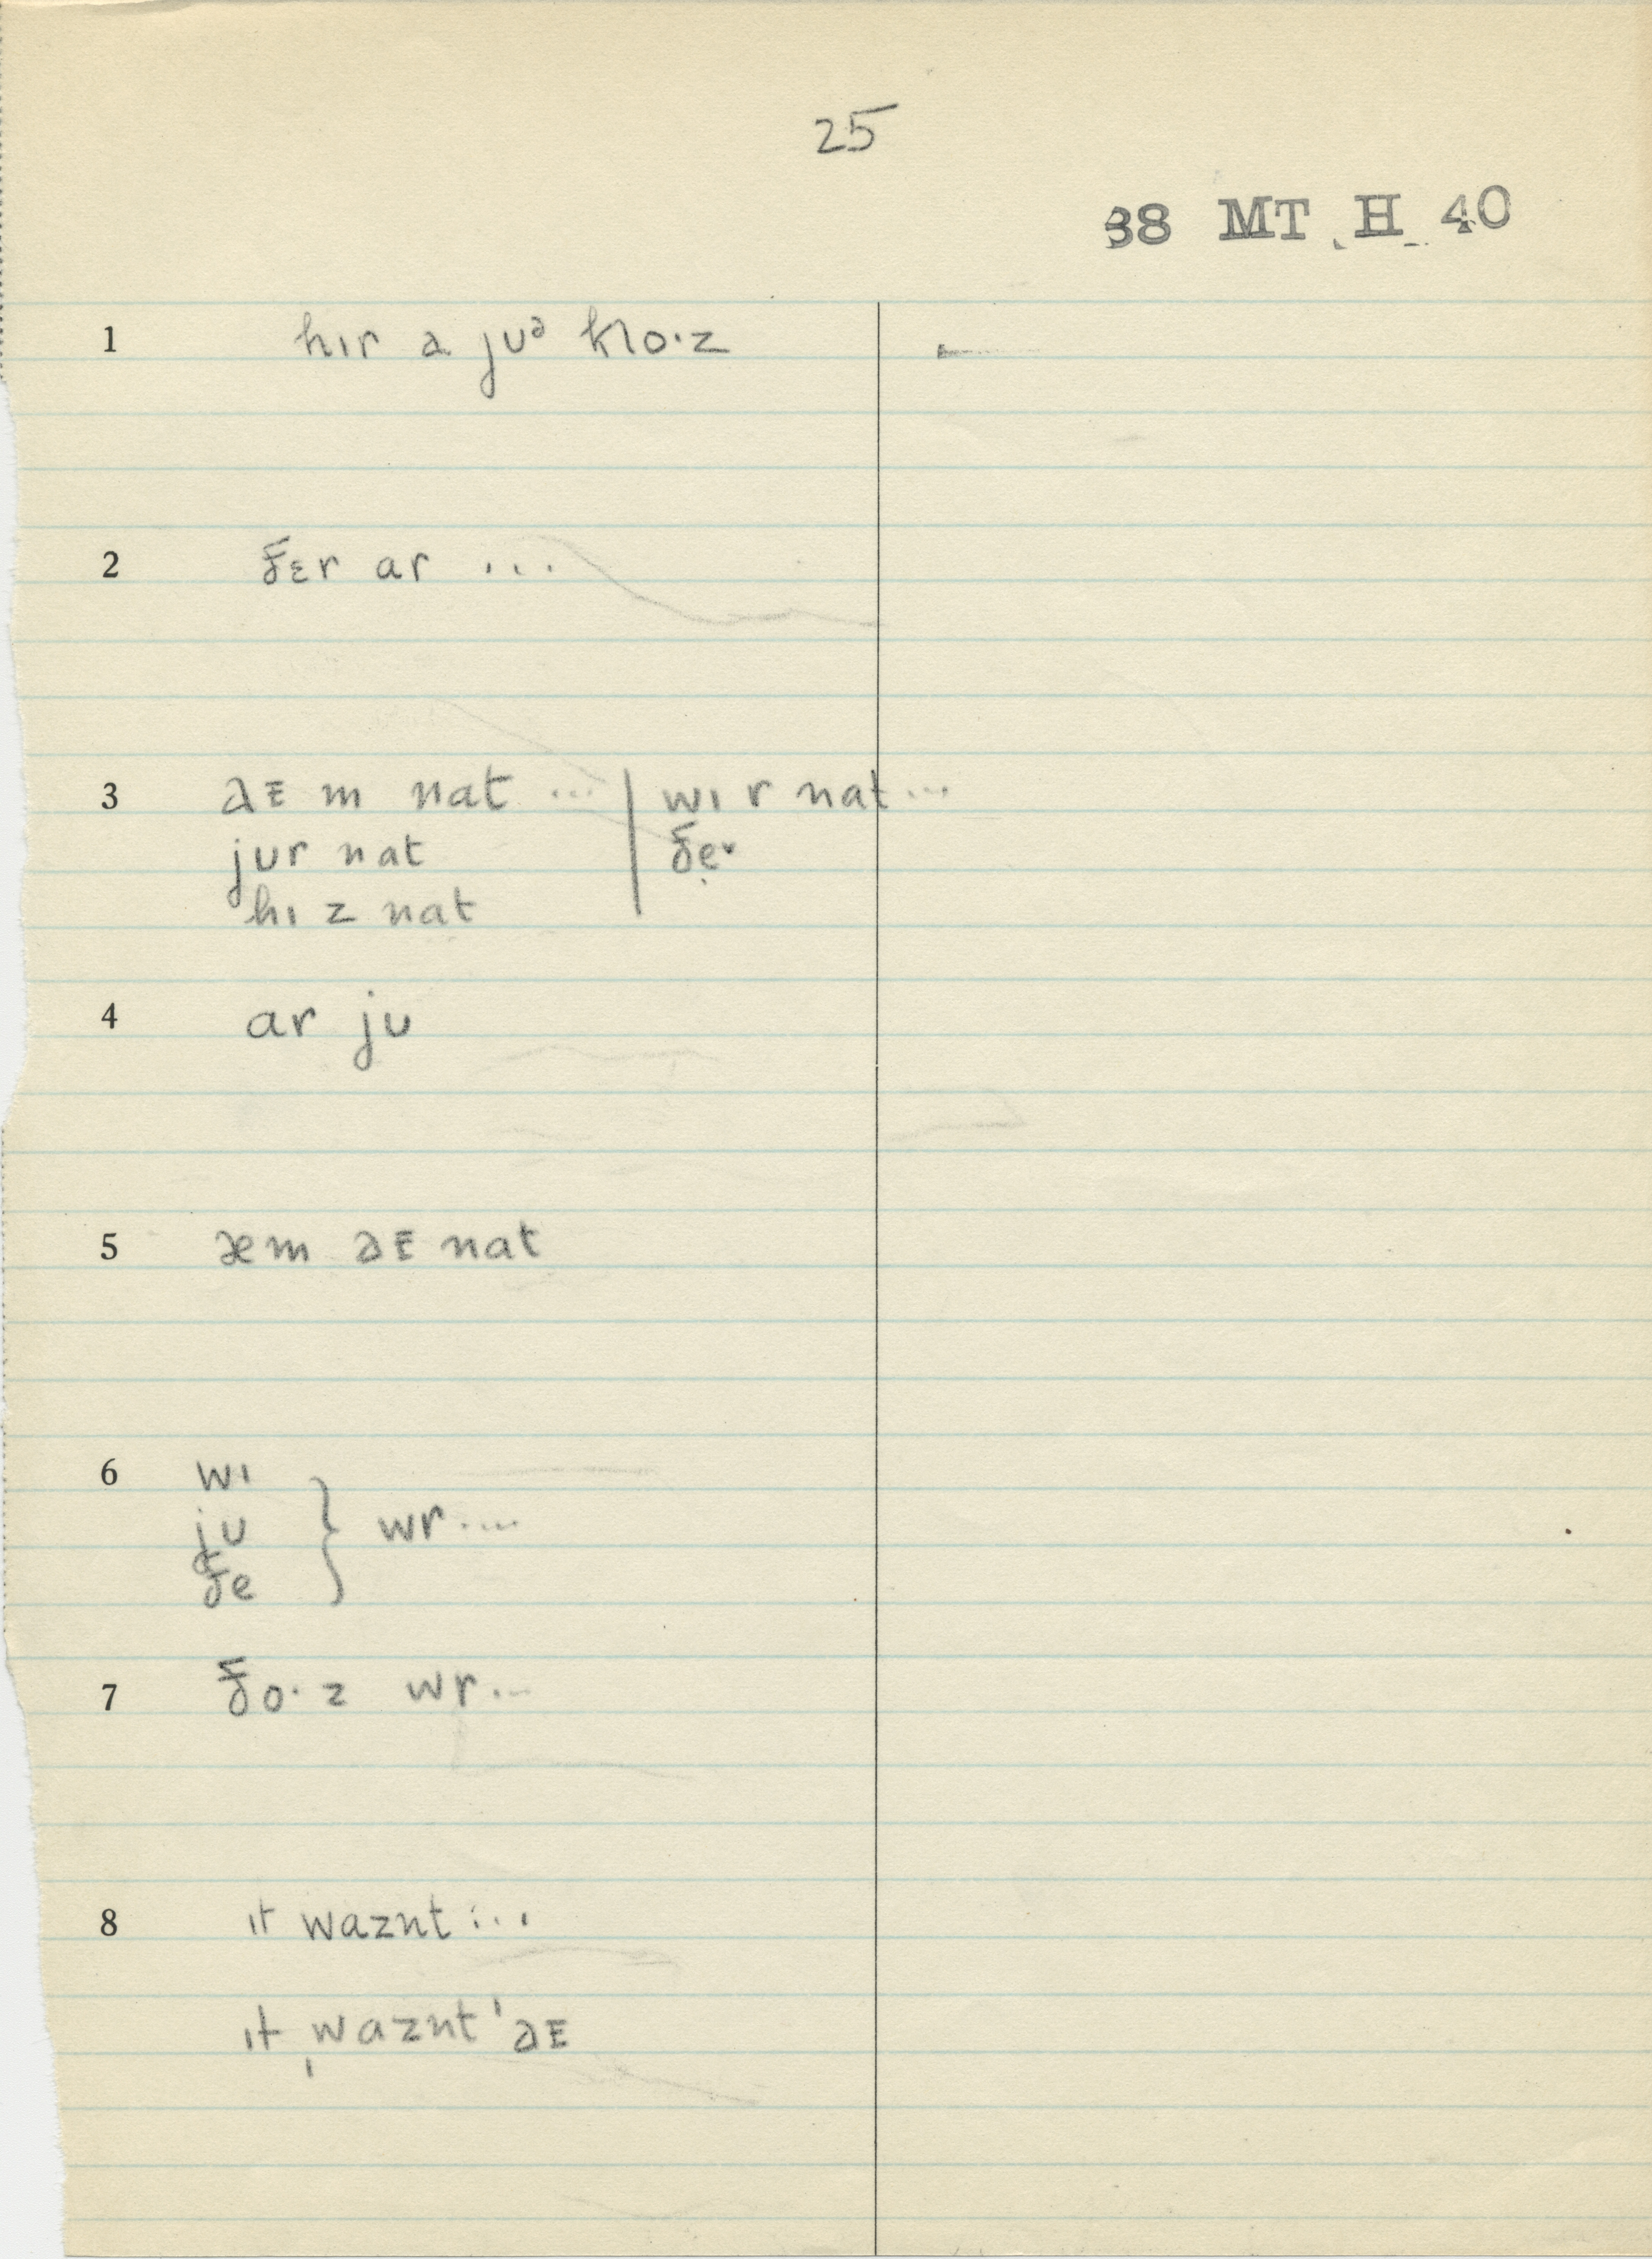 25
38 MT H 40
1 hɪr a jʊᵊ klo·z
2 ðɛr ar ...
3 aᴇ m nat ... | wɪ r nat ...
jʊr nat | ðe̩r
hɪ z nat
4 ar jʊ
5 æm aᴇ nat
6 wɪ
jʊ } wr ....
ðe
7 ðo·z wr ...
8 ɪt waznt ...
ɪt ˌwaznt ˈaᴇ